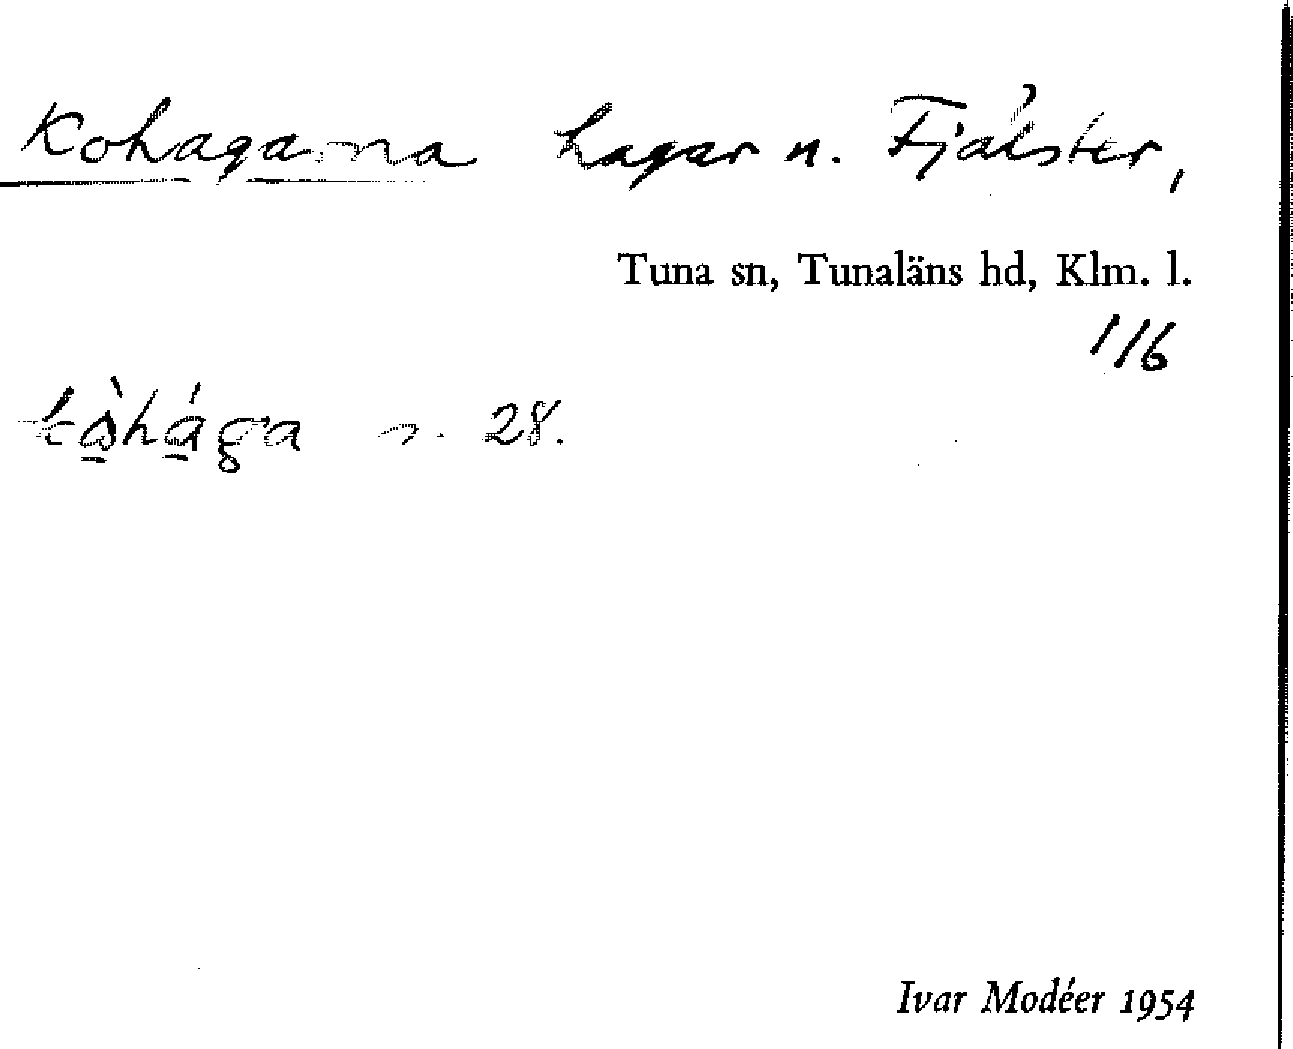 Kohagarna hagar n. Fjälster,
Tuna sn, Tunaläns hd, Klm. l.
1/6
n. 28.
Ivar Modéer 1954